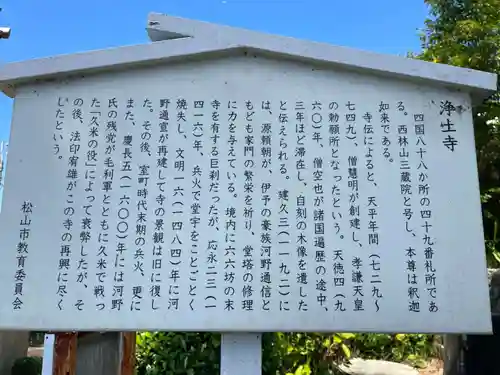 浄土寺
四国八十八か所の四十九番札所であ
る。西林山三蔵院と号し、本尊は釈迦
如来である。
寺伝によると、天平年間(七二九〜
七四九)、僧慧明が創建し、孝謙天皇
の勅願所となったという。天徳四(九
六〇)年、僧空也が諸国遍歴の途中、
三年ほど滞在し、自刻の木像を遺した
と伝えられる。建久三(一一九二)に
は、源頼朝が、伊予の豪族河野通信と
もども家門の繁栄を祈り、堂塔の修理
に力を与えている。境内に六六坊の末
寺を有する巨刹だったが、応永二三(一
四一六)年、兵火で堂宇をことごとく
焼失し、文明一六(一四八四)年に河
野通宣が再建して寺の景観は旧に復し
た。その後、室町時代末期の兵火、更に
また、慶長五(一六〇〇)年には河野
氏の残党が毛利軍とともに久米で戦っ
た「久米の役」によって衰弊したが、そ
の後、法印宥雄がこの寺の再興に尽く
したという。
松山市教育委員会